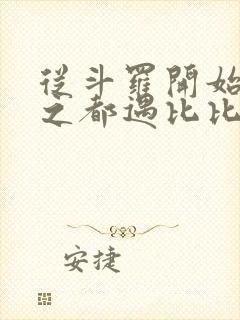 從斗羅開始
之都遇比比
安捷